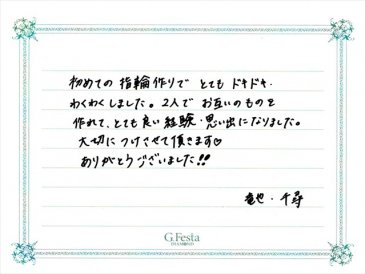 初めての指輪作りでとてもドキドキ
わくわくしました。2人でお互いのものを
作れて、とても良い経験・思い出になりました。
大切につけさせて頂きます♡
ありがとうございました!!
竜也・千尋
G.Festa
DIAMOND